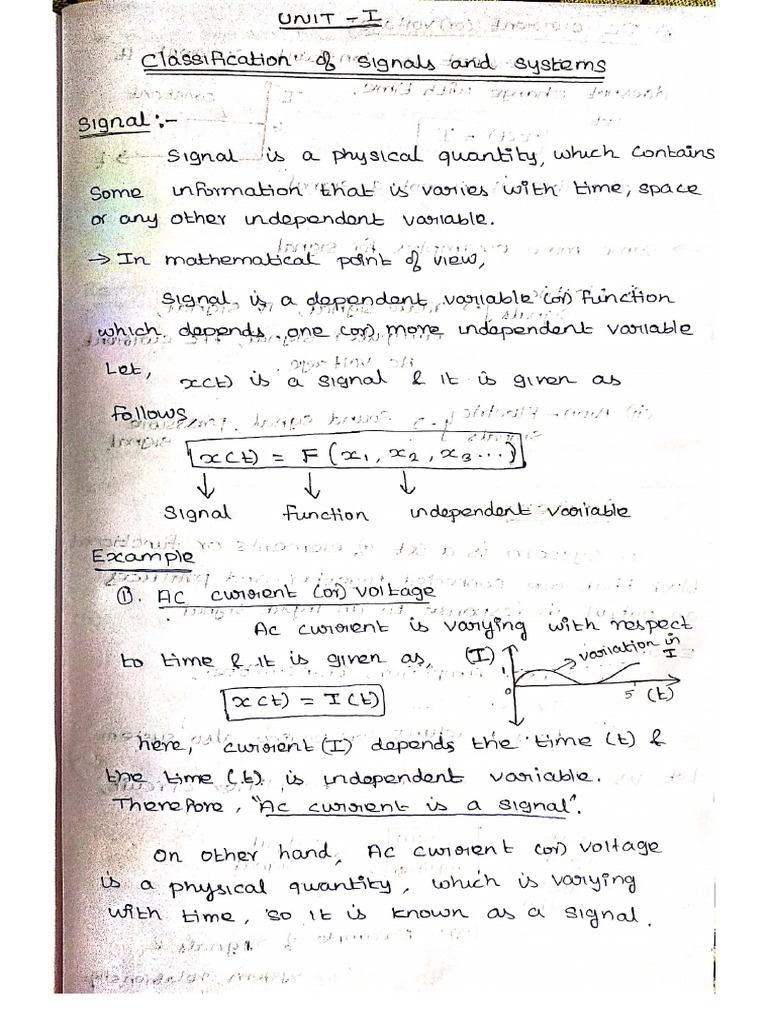 UNIT - I
Classification of signals and systems
Signal:-
Signal is a physical quantity, which contains
Some information that is varies with time, space
or any other independent variable.
→ In mathematical point of view,
Signal is a dependent variable (or) function
which depends one (or) more independent variable
Let, x(t) is a signal & it is given as
follows
x(t) = F (x1, x2, x3...)
Signal function independent variable
Example
1). AC current (or) voltage
AC current is varying with respect
to time & it is given as, (I) variation in I
x(t) = I(t)
1 0 5 (t)
here, current (I) depends the time (t) &
the time (t) is independent variable.
Therefore, "AC current is a signal".
On other hand, AC current (or) voltage
is a physical quantity, which is varying
with time, so it is known as a signal.